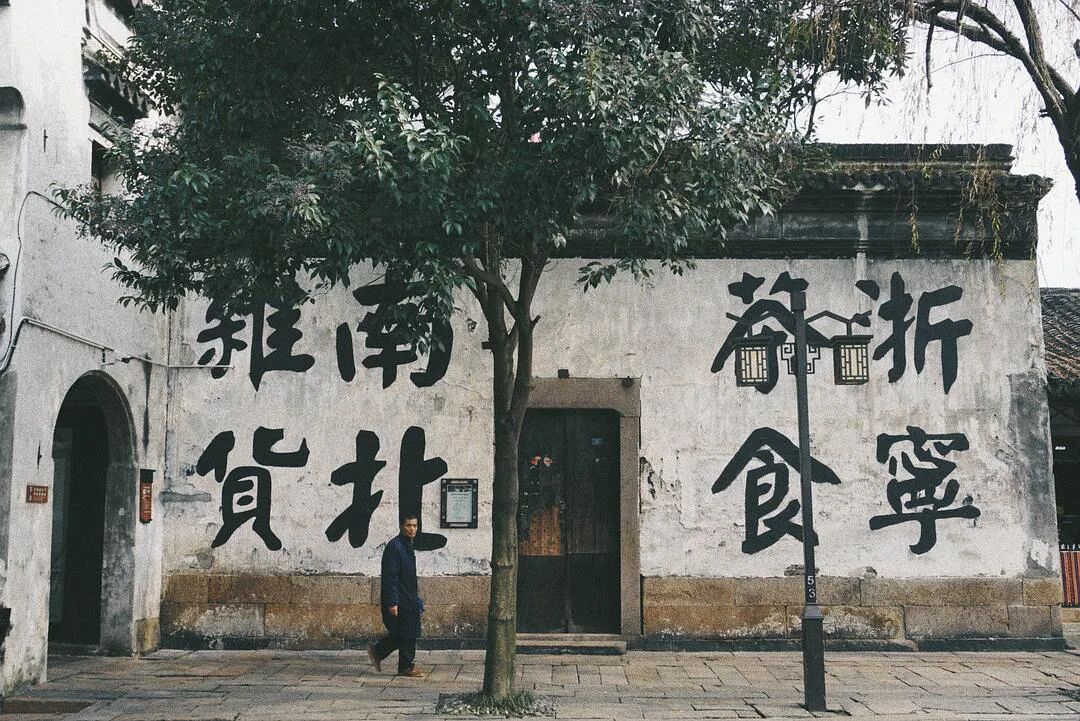 浙寧
茶食
南北
雜貨
53